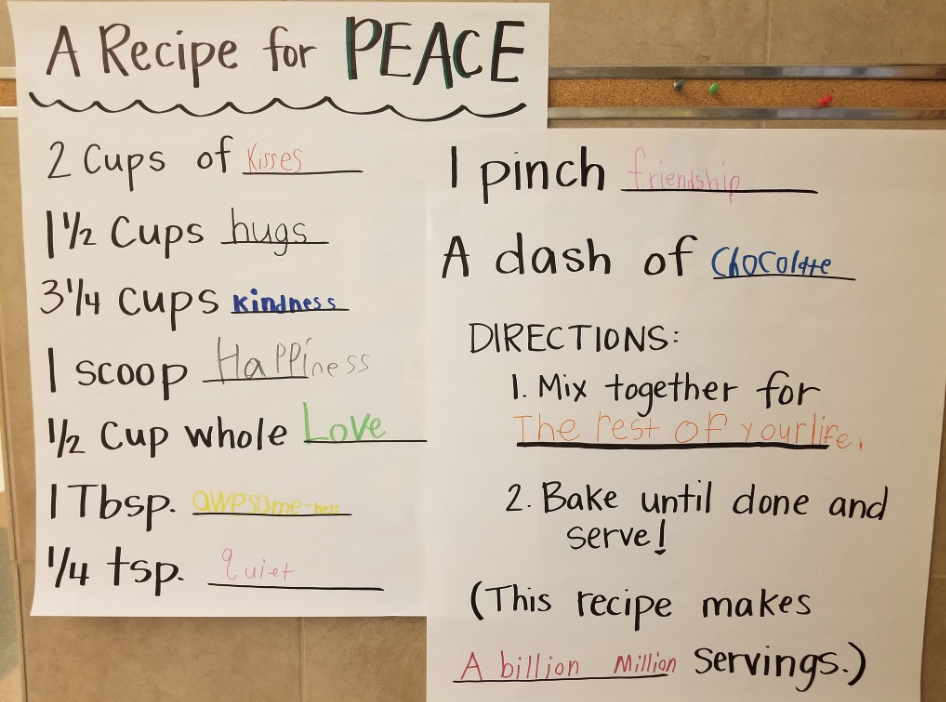 A Recipe for PEACE
2 Cups of Kisses
1 1/2 Cups hugs
3 1/4 cups kindness
1 scoop Happiness
1/2 Cup whole Love
1 Tbsp. awesome-ness
1/4 tsp. quiet
1 pinch friendship
A dash of Chocolatte
DIRECTIONS:
1. Mix together for
The rest of your life.
2. Bake until done and
serve!
(This recipe makes
A billion Million servings.)